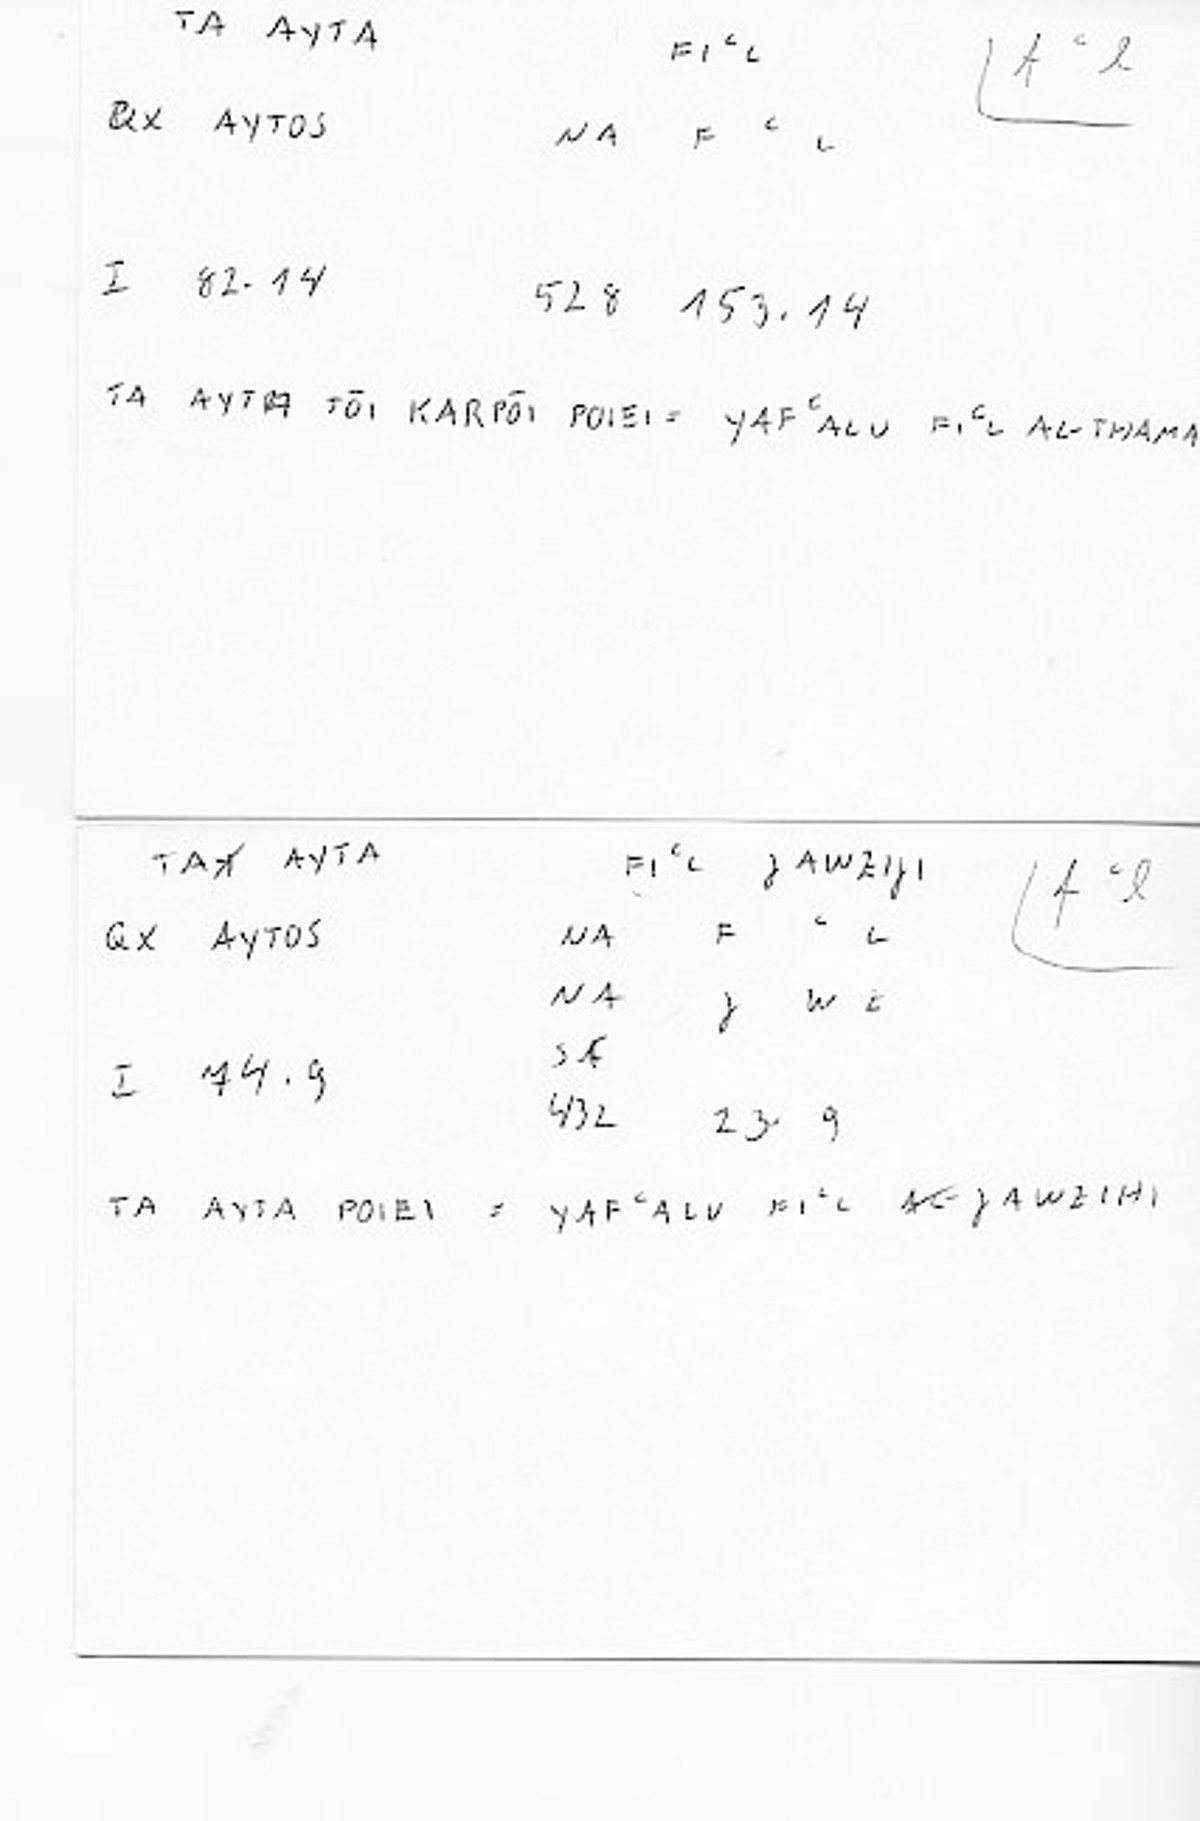 TA AYTA FIᶜL fᶜl
QX AYTOS NA F ᶜ L
I 82.14 528 153.14
TA AYTA TŌI KARPŌI POIEI = YAFᶜALU FIᶜL AL-THAMA
TA AYTA FIᶜL JAWZIJI fᶜl
QX AYTOS NA F ᶜ L
NA J W Z
I 74.9
432 23 9
TA AYTA POIEI = YAFᶜALU FIᶜL AL-JAWZIHI